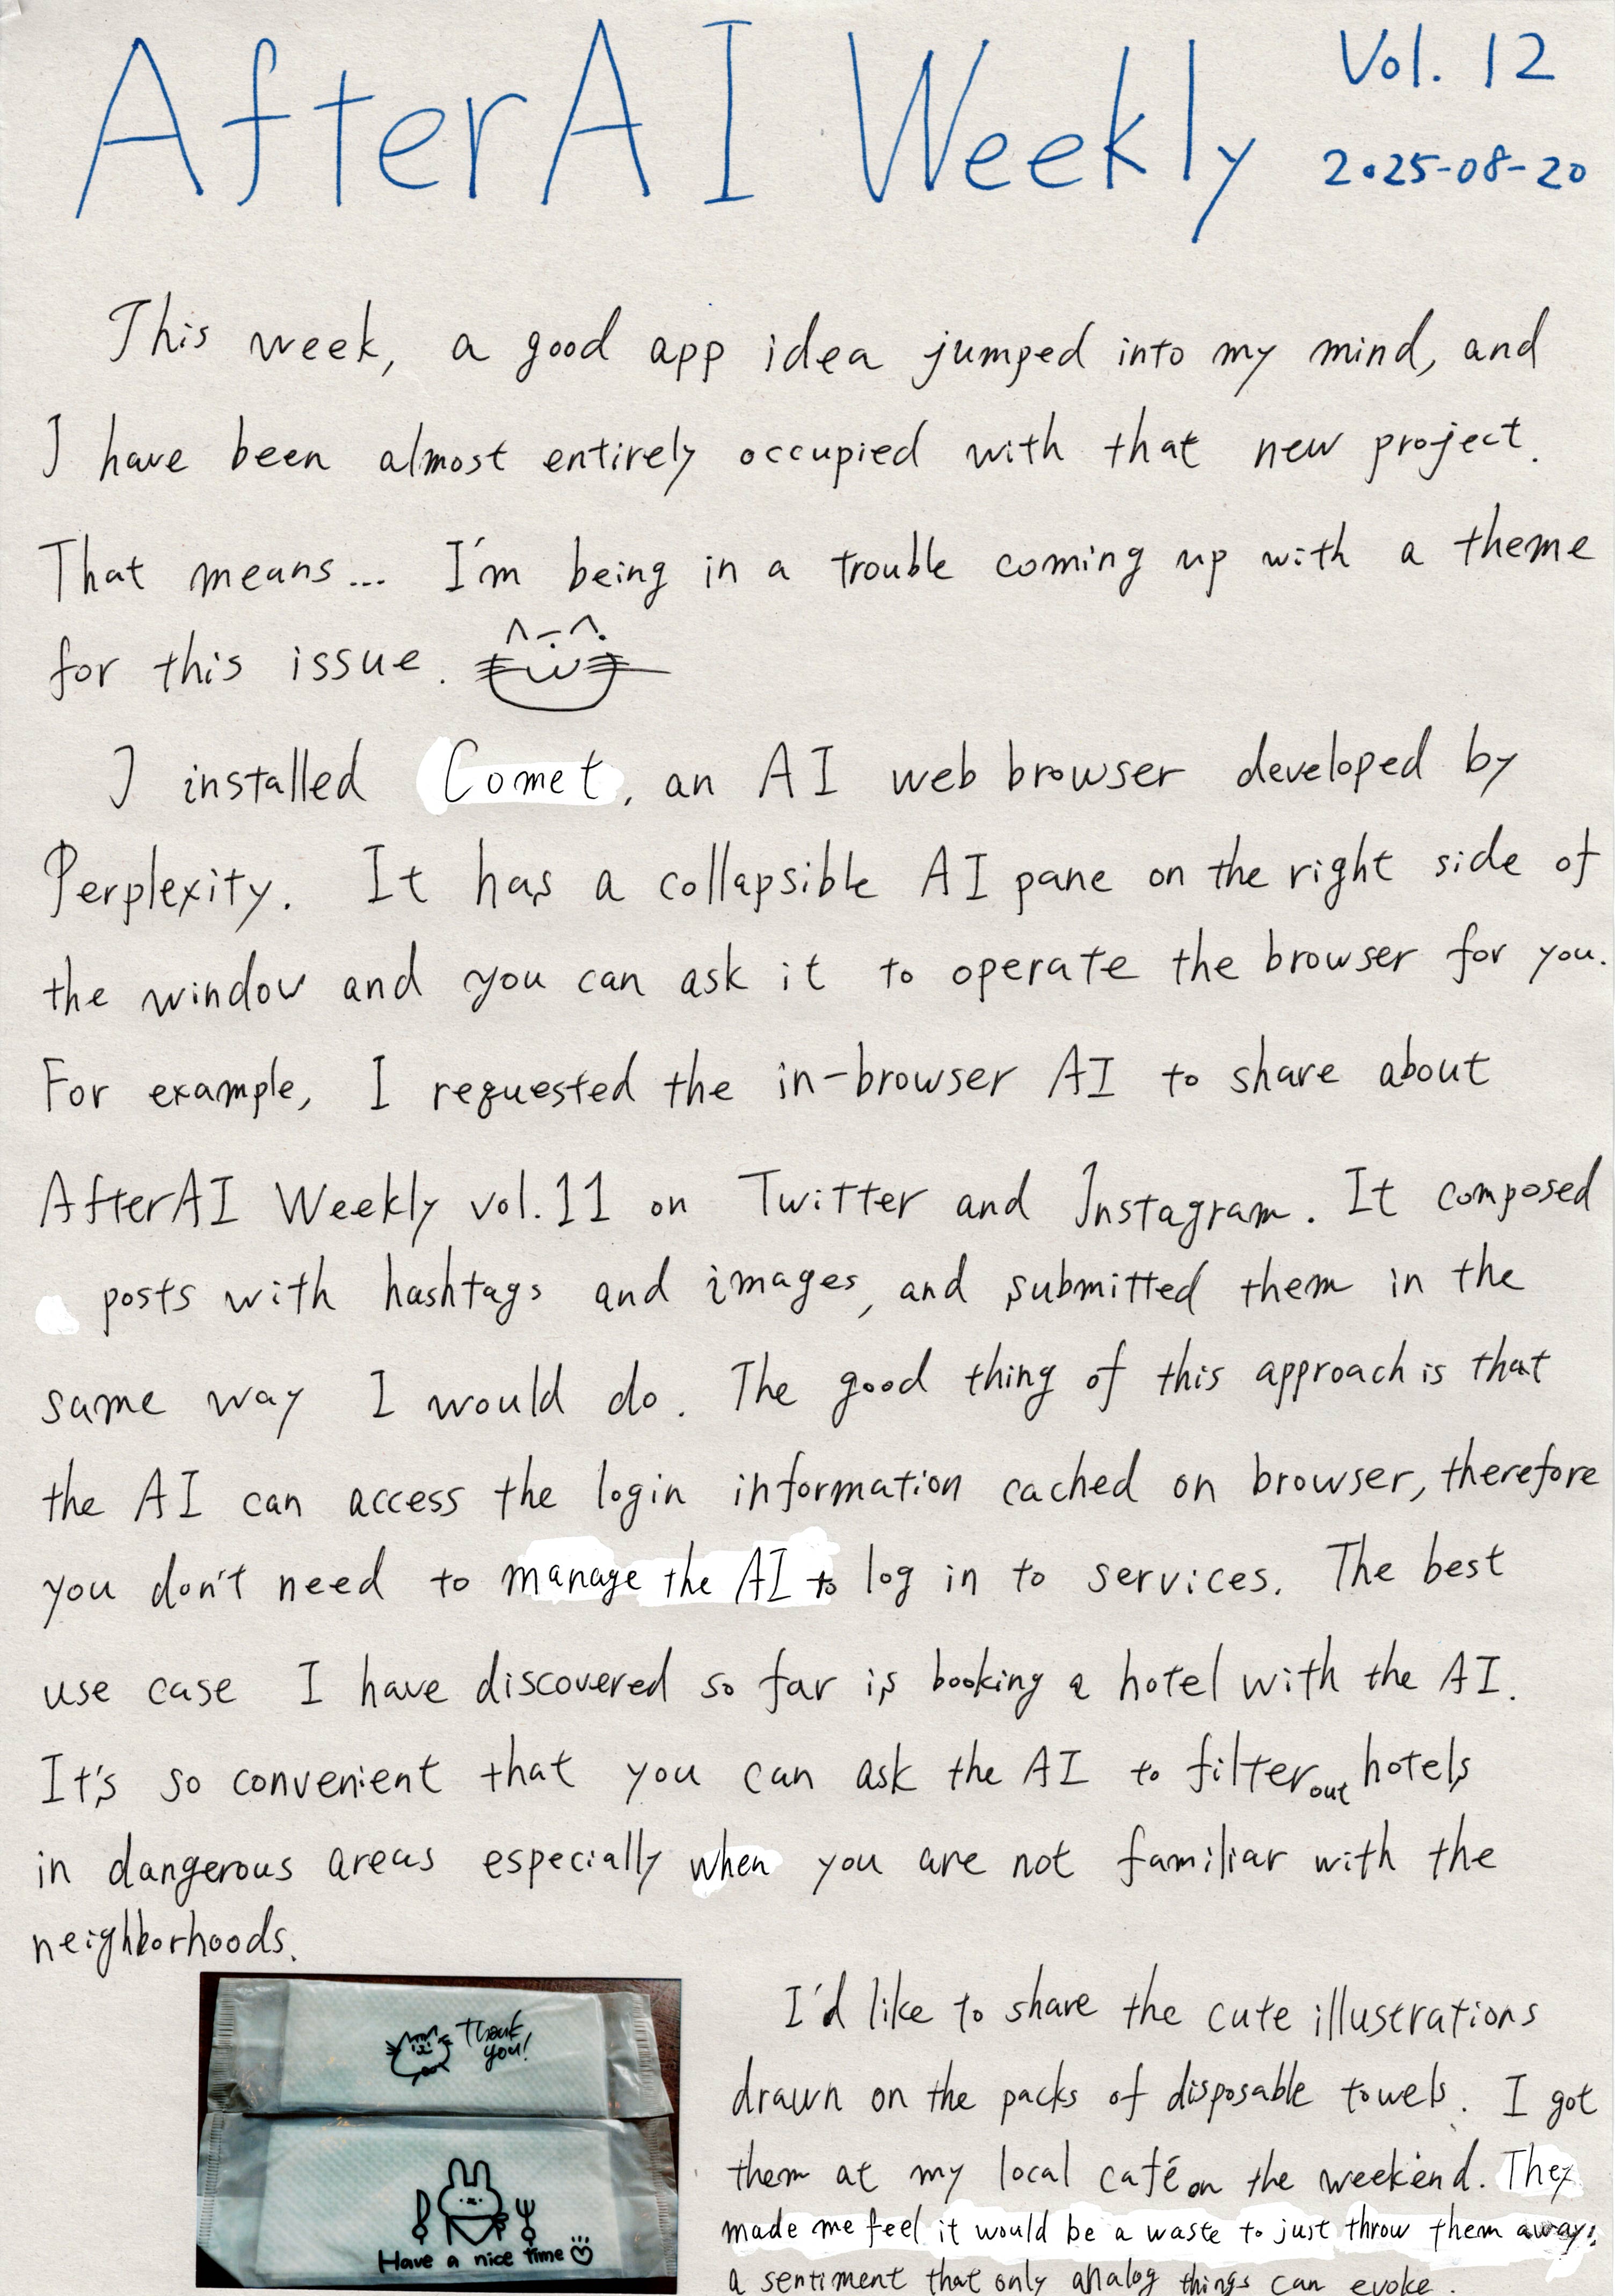 AfterAI Weekly
Vol. 12
2025-08-20
This week, a good app idea jumped into my mind, and
I have been almost entirely occupied with that new project.
That means... I'm being in a trouble coming up with a theme
for this issue.
I installed Comet, an AI web browser developed by
Perplexity. It has a collapsible AI pane on the right side of
the window and you can ask it to operate the browser for you.
For example, I requested the in-browser AI to share about
AfterAI Weekly vol.11 on Twitter and Instagram. It composed
posts with hashtags and images, and submitted them in the
same way I would do. The good thing of this approach is that
the AI can access the login information cached on browser, therefore
you don't need to manage the AI to log in to services. The best
use case I have discovered so far is booking a hotel with the AI.
It's so convenient that you can ask the AI to filter out hotels
in dangerous areas especially when you are not familiar with the
neighborhoods.
Thank
you!
Have a nice time
I'd like to share the cute illustrations
drawn on the packs of disposable towels. I got
them at my local café on the weekend. They
made me feel it would be a waste to just throw them away;
a sentiment that only analog things can evoke.